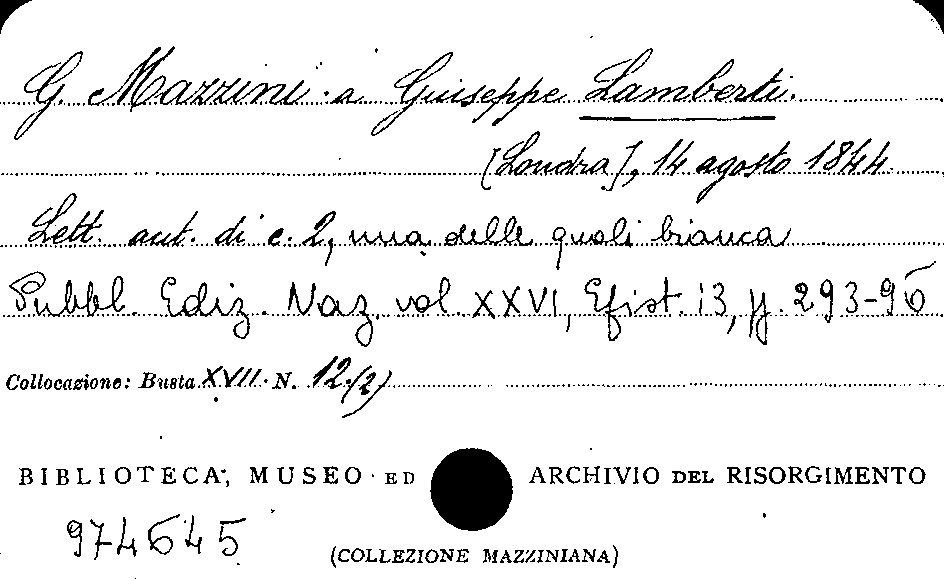 G. Mazzini a Giuseppe Lamberti.
[Londra], 14 agosto 1844.
Lett. aut. di c. 2, una delle quali bianca
Pubbl. Ediz. Naz. vol. XXVI, Epist. 13, pp. 293-96
Collocazione: Busta XVII N. 12(2)
BIBLIOTECA, MUSEO ED ARCHIVIO DEL RISORGIMENTO
974645
(COLLEZIONE MAZZINIANA)